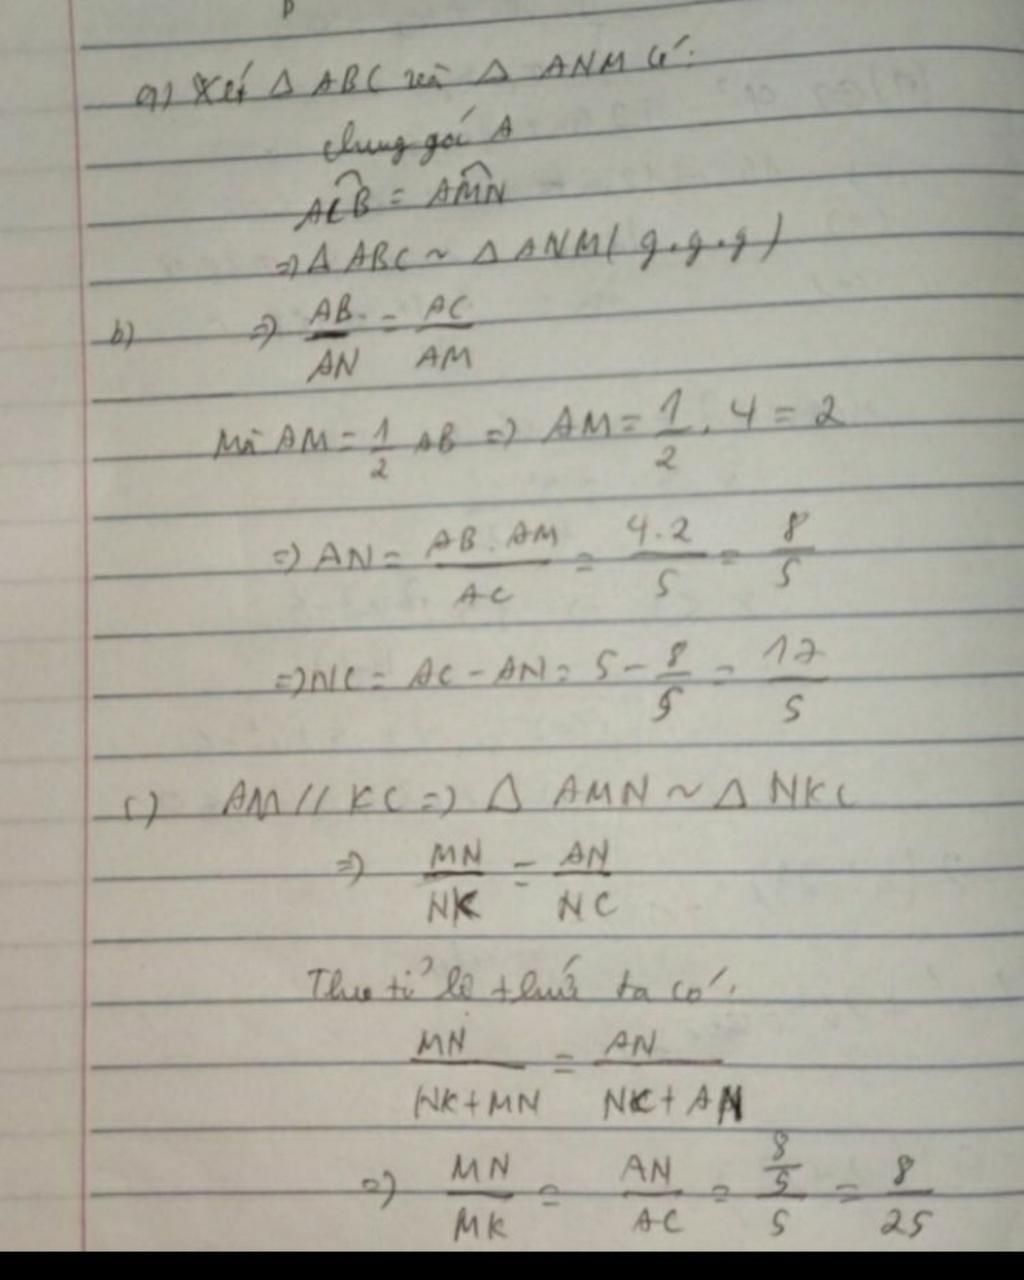 a) Xét Δ ABC và Δ ANM có:
chung góc A
ACB = AMN
=> Δ ABC ~ Δ ANM( g.g.g)
b) => AB/AN = AC/AM
Mà AM = 1/2 AB => AM = 1/2 . 4 = 2
=> AN = AB.AM/AC = 4.2/5 = 8/5
=> NC = AC - AN = 5 - 8/5 = 17/5
c) AM // KC => Δ AMN ~ Δ NKC
=> MN/NK = AN/NC
Theo tỉ lệ thức ta có:
MN/NK+MN = AN/NC+AN
=> MN/MK = AN/AC = 8/5/5 = 8/25